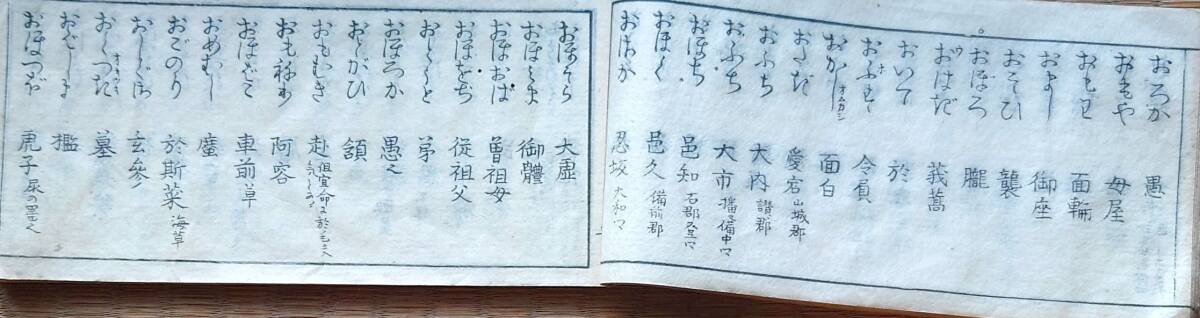 おろか 愚
おもや 母屋
おもわ 面輪
およし 御座
おそひ 襲
おぼろ 朧
おはぎ 莪蒿
おいて 於
おふす 令負
おかし オムカシ 面白
おたぎ 愛宕 山城郡
おふち 大内 讃郡
おふち 大市
おほち 邑知
おほく 邑久 備前郡
おさか 忍坂 大和
おほそら 大虚
おほみま 御體
おほおば 曽祖母
おほをぢ 従祖父
おとうと 弟
おほつか 愚
おとがひ 頷
おもむき 赴
おもねり 阿容
おほばこ 車前草
おめむし 䗪
おごのり 於期菜 海草
おしくさ 玄参
おくつき 墓
おばしま 檻
おほつぼ 虎子 尿の器也